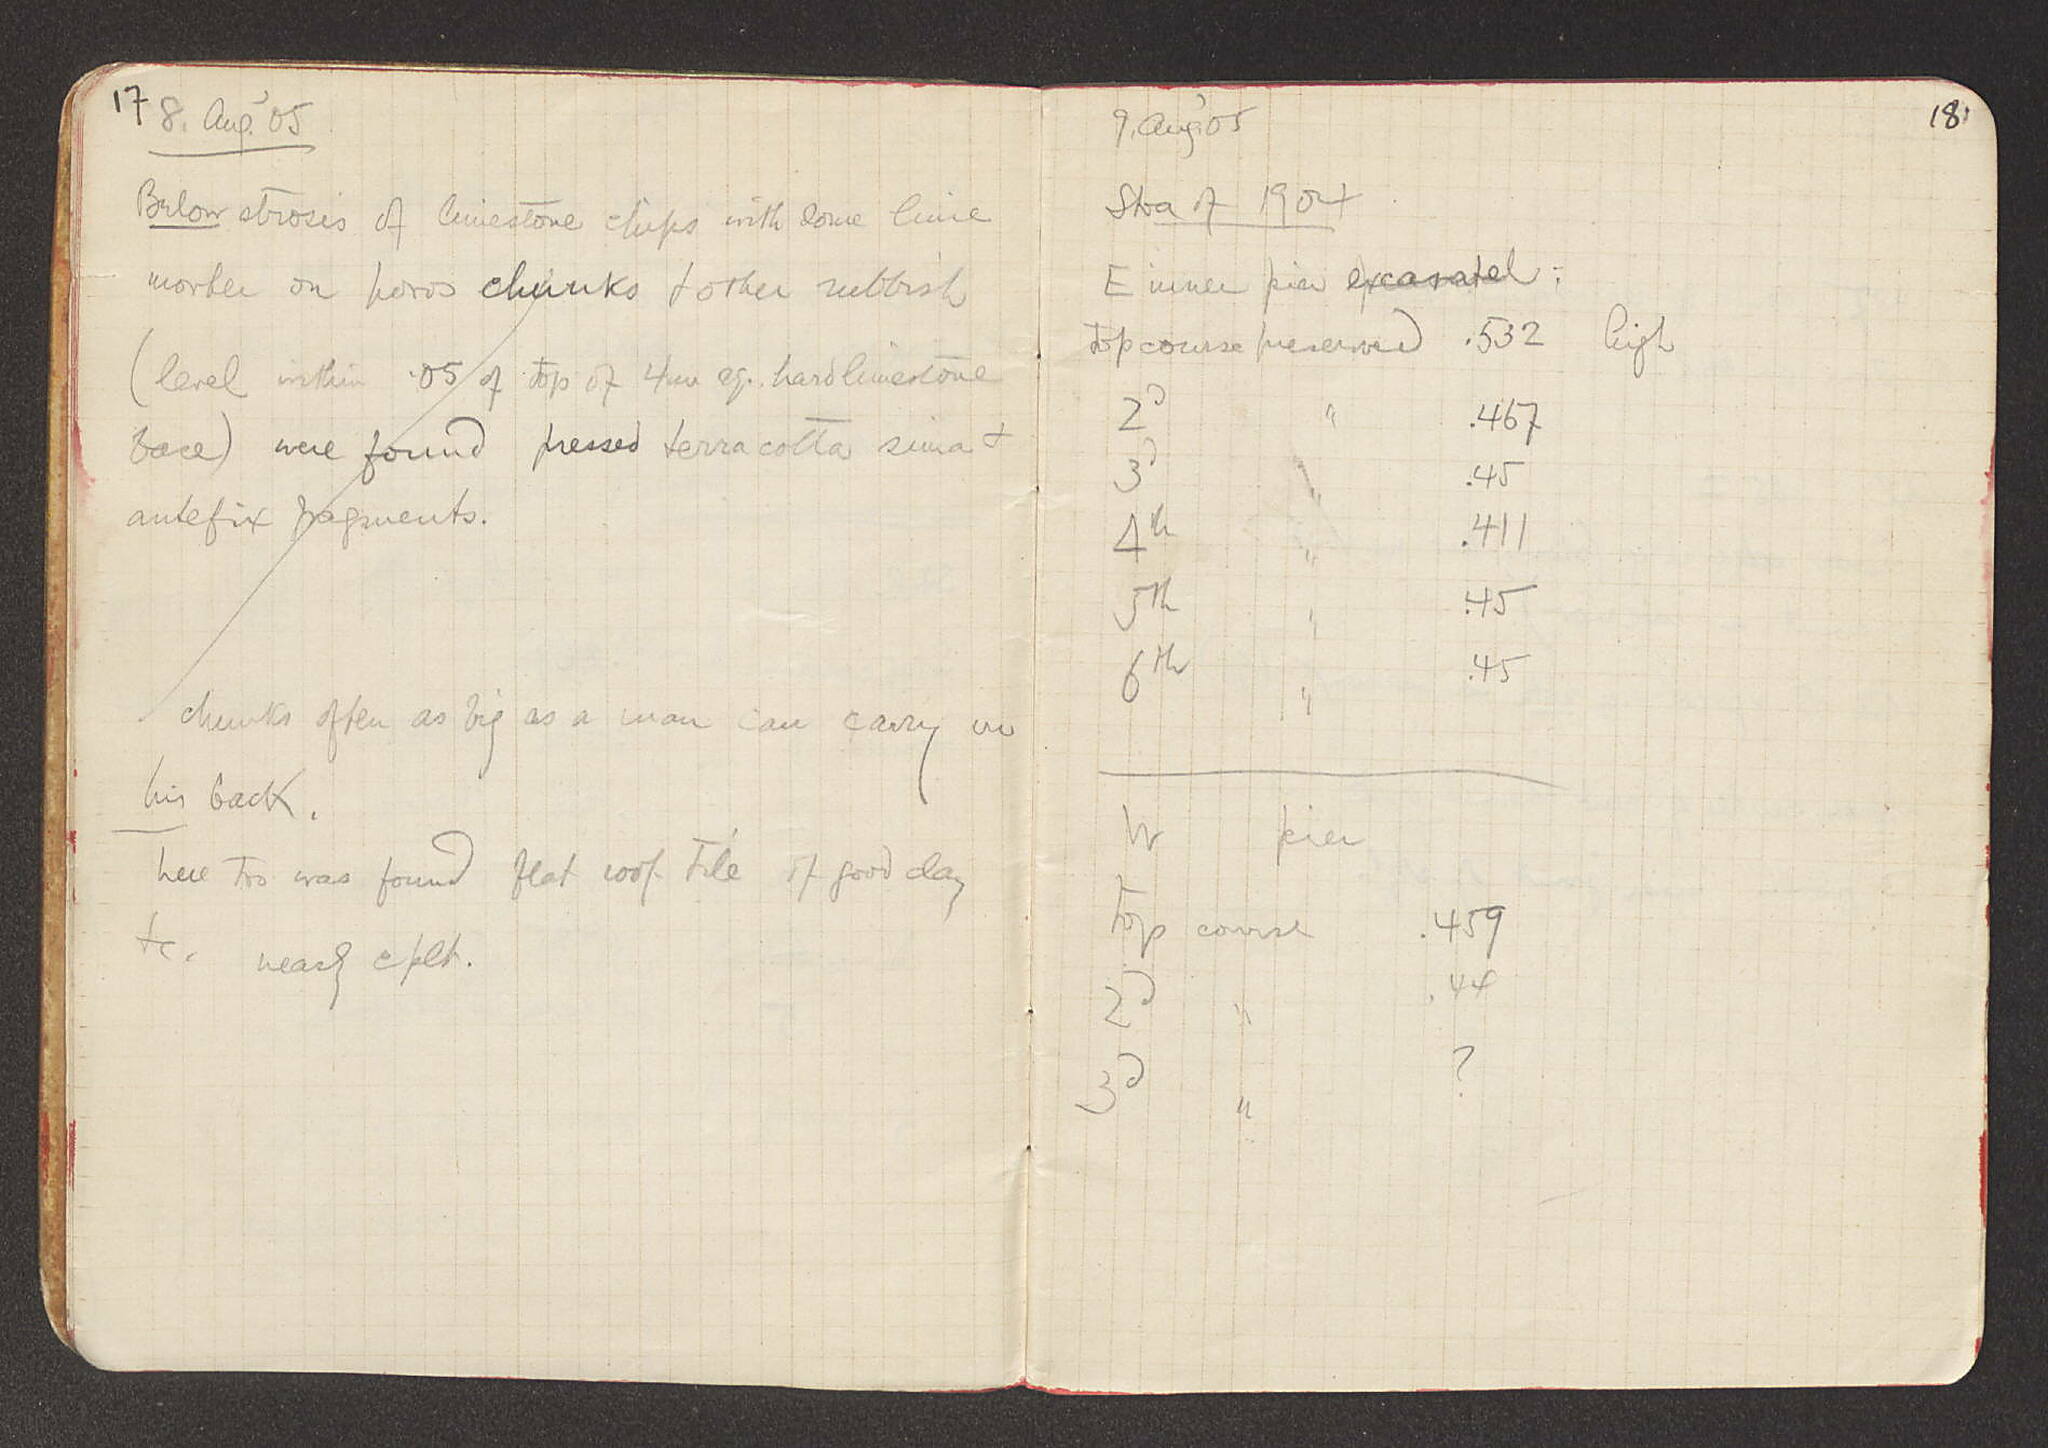 17
8. Aug. '05
Below strosis of limestone chips with some lime
mortar on poros chunks + other rubbish
(level within .05 of top of 4m sq. hard limestone
base) were found pressed terracotta sima +
antefix fragments.
chunks often as big as a man can carry on
his back.
here too was found flat roof tile of good clay
tc. nearly cplt.
18
9. Aug '05
Stoa of 1904
E inner pier excavated:
top course preserved .532 high
2d " .467
3d " .45
4th " .411
5th " .45
6th " .45
W pier
Top course .459
2d " .44
3d " ?